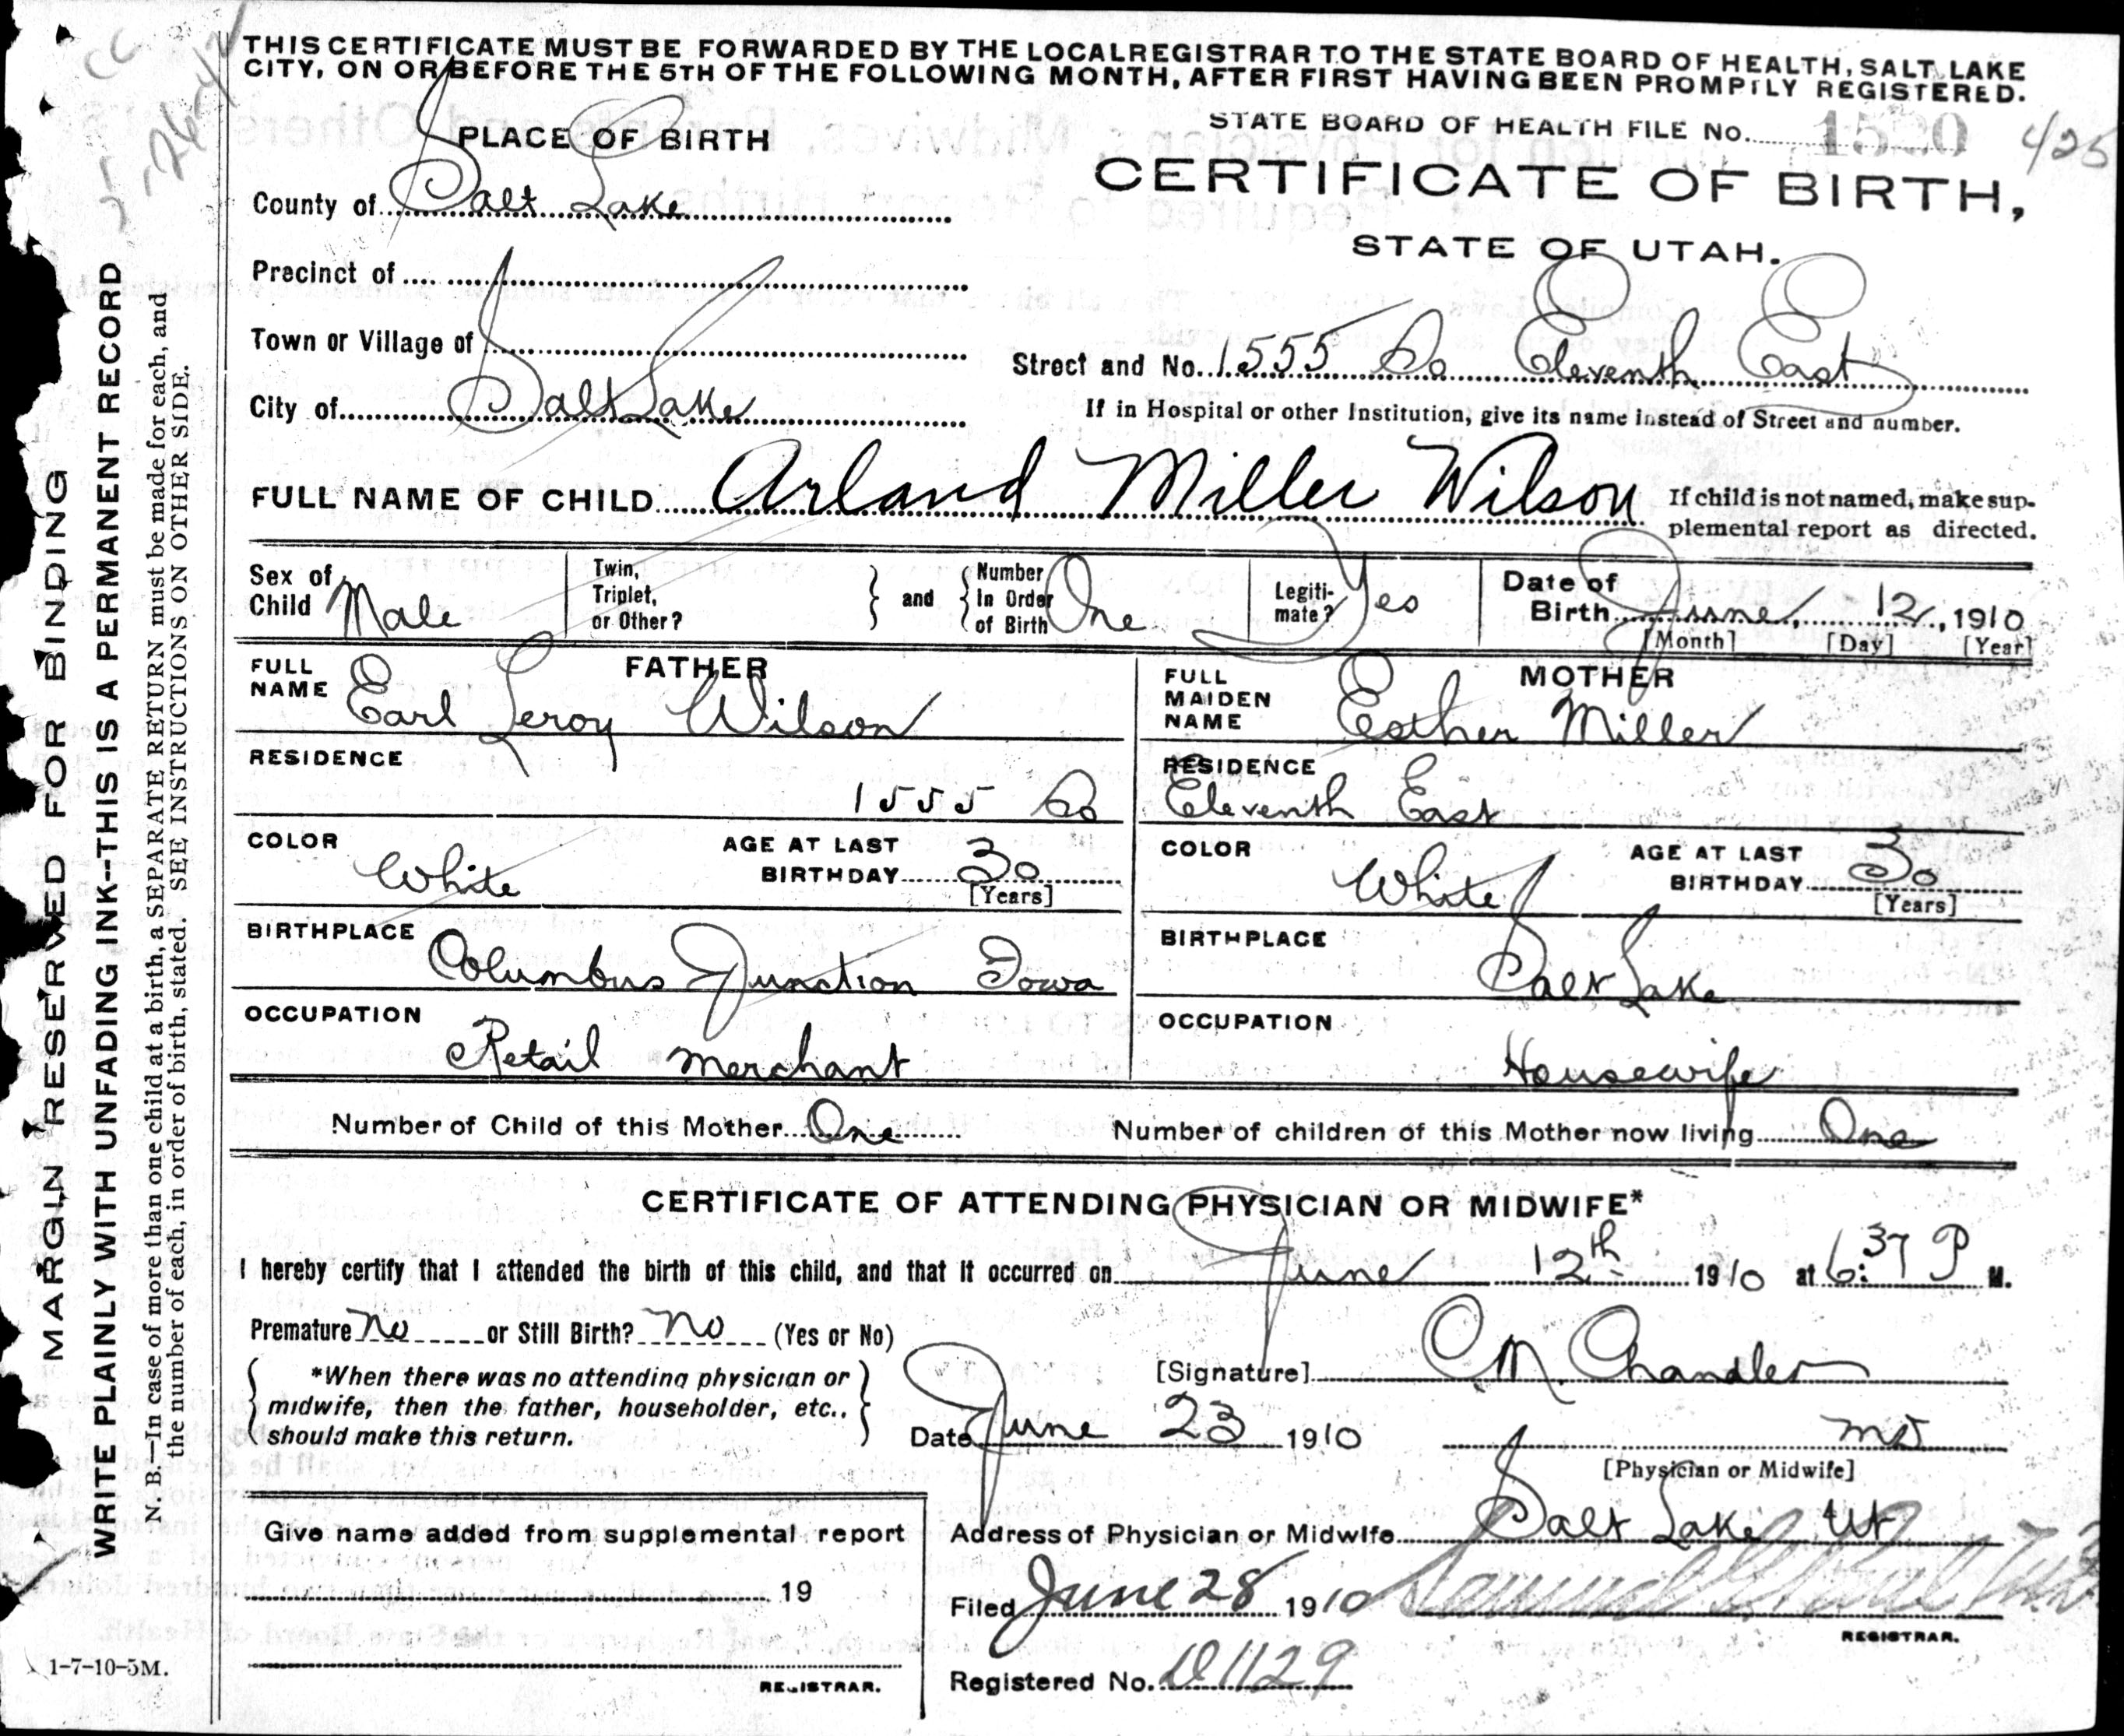 THIS CERTIFICATE MUST BE FORWARDED BY THE LOCAL REGISTRAR TO THE STATE BOARD OF HEALTH, SALT LAKE
CITY, ON OR BEFORE THE 5TH OF THE FOLLOWING MONTH, AFTER FIRST HAVING BEEN PROMPTLY REGISTERED.
STATE BOARD OF HEALTH FILE No. 425
CERTIFICATE OF BIRTH,
STATE OF UTAH.
PLACE OF BIRTH
County of Salt Lake
Precinct of
Town or Village of
City of Salt Lake
Street and No. 1555 So Eleventh East
If in Hospital or other Institution, give its name instead of Street and number.
FULL NAME OF CHILD Arland Miller Wilson
If child is not named, make sup-
plemental report as directed.
Sex of Child Male
Twin, Triplet, or Other?
and
Number In Order of Birth One
Legiti-mate? Yes
Date of Birth June, 12, 1910
[Month] [Day] [Year]
FATHER
FULL NAME Earl Leroy Wilson
RESIDENCE
1555 So
COLOR White
AGE AT LAST BIRTHDAY 30
[Years]
BIRTHPLACE Columbus Junction Iowa
OCCUPATION
Retail Merchant
MOTHER
FULL MAIDEN NAME Esther Miller
RESIDENCE
Eleventh East
COLOR White
AGE AT LAST BIRTHDAY 30
[Years]
BIRTHPLACE
Salt Lake
OCCUPATION
Housewife
Number of Child of this Mother One
Number of children of this Mother now living One
CERTIFICATE OF ATTENDING PHYSICIAN OR MIDWIFE*
I hereby certify that I attended the birth of this child, and that it occurred on June 12th 1910 at 6:37 P M.
Premature No or Still Birth? No (Yes or No)
*When there was no attending physician or
midwife, then the father, householder, etc.,
should make this return.
[Signature] C M. Chandler
Date June 23 1910
MD
[Physician or Midwife]
Address of Physician or Midwife Salt Lake Ut
Filed June 28 1910
REGISTRAR.
Registered No. 1129
Give name added from supplemental report
19
REGISTRAR.
MARGIN RESERVED FOR BINDING
WRITE PLAINLY WITH UNFADING INK--THIS IS A PERMANENT RECORD
N. B.—In case of more than one child at a birth, a SEPARATE RETURN must be made for each, and
the number of each, in order of birth, stated. SEE INSTRUCTIONS ON OTHER SIDE.
1-7-10-5M.